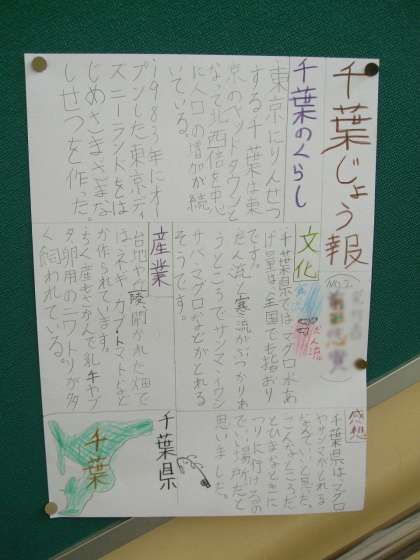 千葉じょう報
NO.2
千葉のくらし
東京にりんせつ
する千葉は東
京のベッドタウンと
なって北西信を中心
に人口の増加が続
いている。
1983年にオー
プンした東京ディ
ズニーランドをは
じめさまざまな
しせつを作った。
文化
千葉県ではマグロ水あ
げ量は、全国でも指おり
です。
だん流と寒流がぶつかりあ
うところでサンマ・イワシ
サバ・マグロなどがとれる
そうです。
だん流
産業
台地や丘陵開かれた畑で
はネギ・カブ・トマトなど
が作られています。
ちく産もさかんで乳牛やブ
タ卵用のニワトリが多
く飼われている。
感想
千葉県はマグロ
やサンマがとれる
なんていいと思った。
こんなところだ
とひまなときに
つりに行けるの
でいい場所だと
思いました。
千葉県
千葉